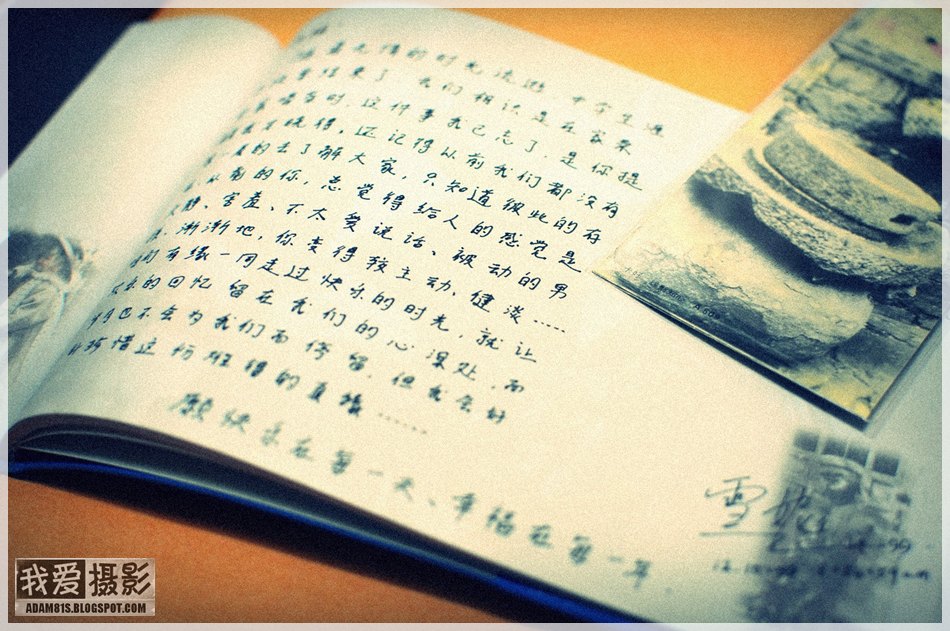 的时光流逝，中学生涯
结束了，我们相识是在家
当时，这件事我已忘了，是你提
才晓得，还记得从前我们都没有
的去了解大家，只知道彼此的存
从前的你，总觉得给人的感觉是
静、害羞、不太爱说话、被动的男
渐渐地，你变得较主动、健谈……
们有缘一同走过快乐的时光，就让
的回忆留在我们的心深处，而
不会为我们而停留，但我会好
好珍惜这份难得的真挚……
愿快乐在第一天、幸福在第一年
雪
我爱摄影
ADAM81S.BLOGSPOT.COM